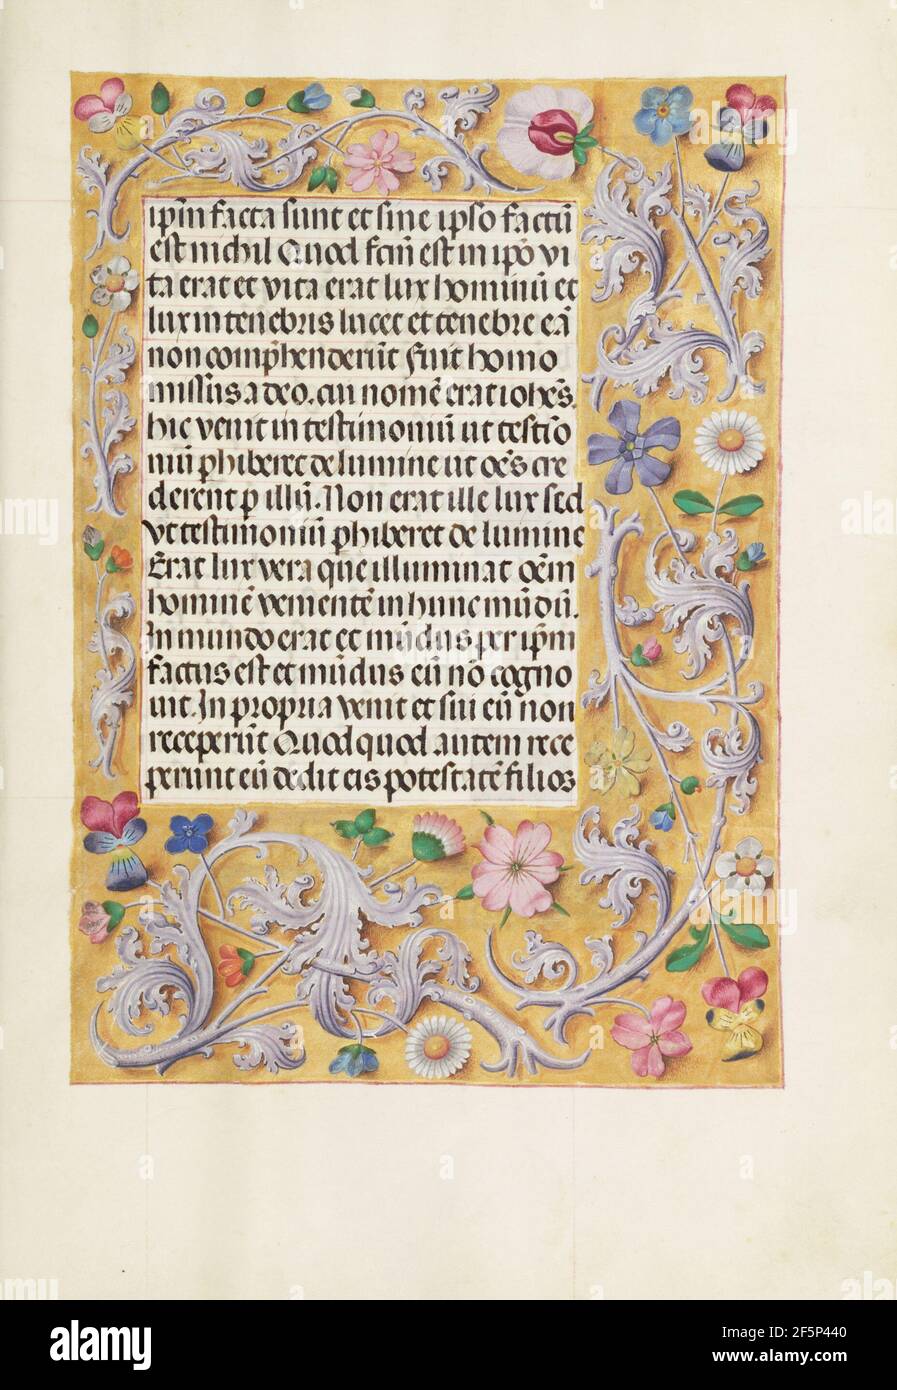 ip̄m facta sunt et sine ipso factū
est nichil Quod fcm̄ est in ip̄o vi
ta erat et vita erat lux hominū et
lux in tenebris lucet et tenebre eā
non comp̄henderūt Fuit homo
missus a deo. cui nomē erat iohēs.
hic venit in testimoniū ut testīo
niū phiberet de lumine ut oēs cre
derent p illū. Non erat ille lux sed
vt testimoniū phiberet de lumine
Erat lux vera que illuminat oēm
hominē venientē in hunc mūdū.
In mundo erat et mūdus per ip̄m
factus est et mūdus eū nō cogno
uit. In propria venit et sui eū non
receperūt Quod quod autem rece
perunt eū dedit eis potestatē filios
alamy
Image ID: 2F5P440
www.alamy.com